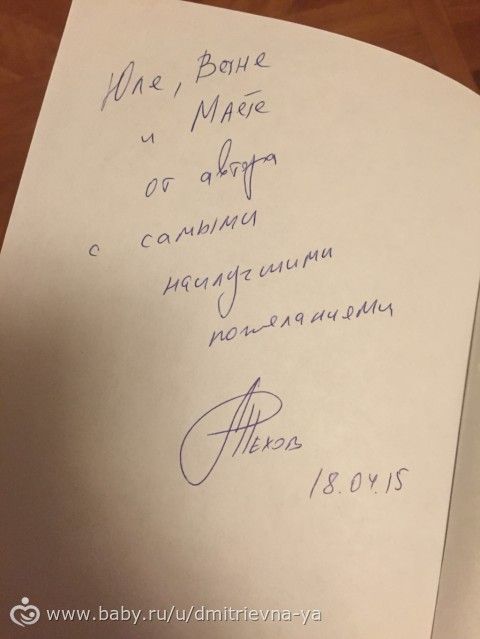 Юле, Ване
и Мате
от автора
с самыми
наилучшими
пожеланиями
18.04.15
www.baby.ru/u/dmitrievna-ya